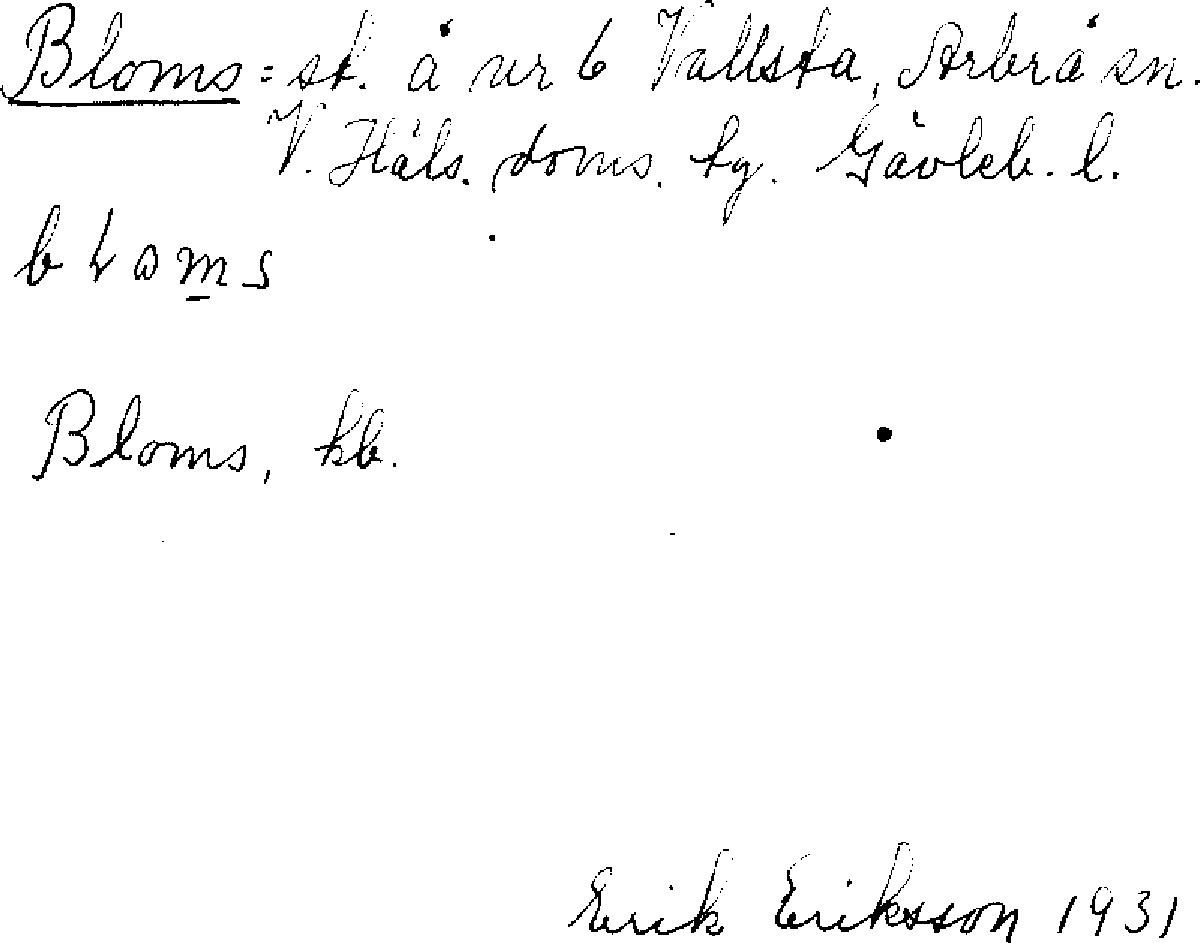 Bloms = st. å nr 6 Vallsta, Arbrå sn.
V. Häls. doms. tg. Gävleb. l.
bloms
Bloms, kb.
Erik Eriksson 1931